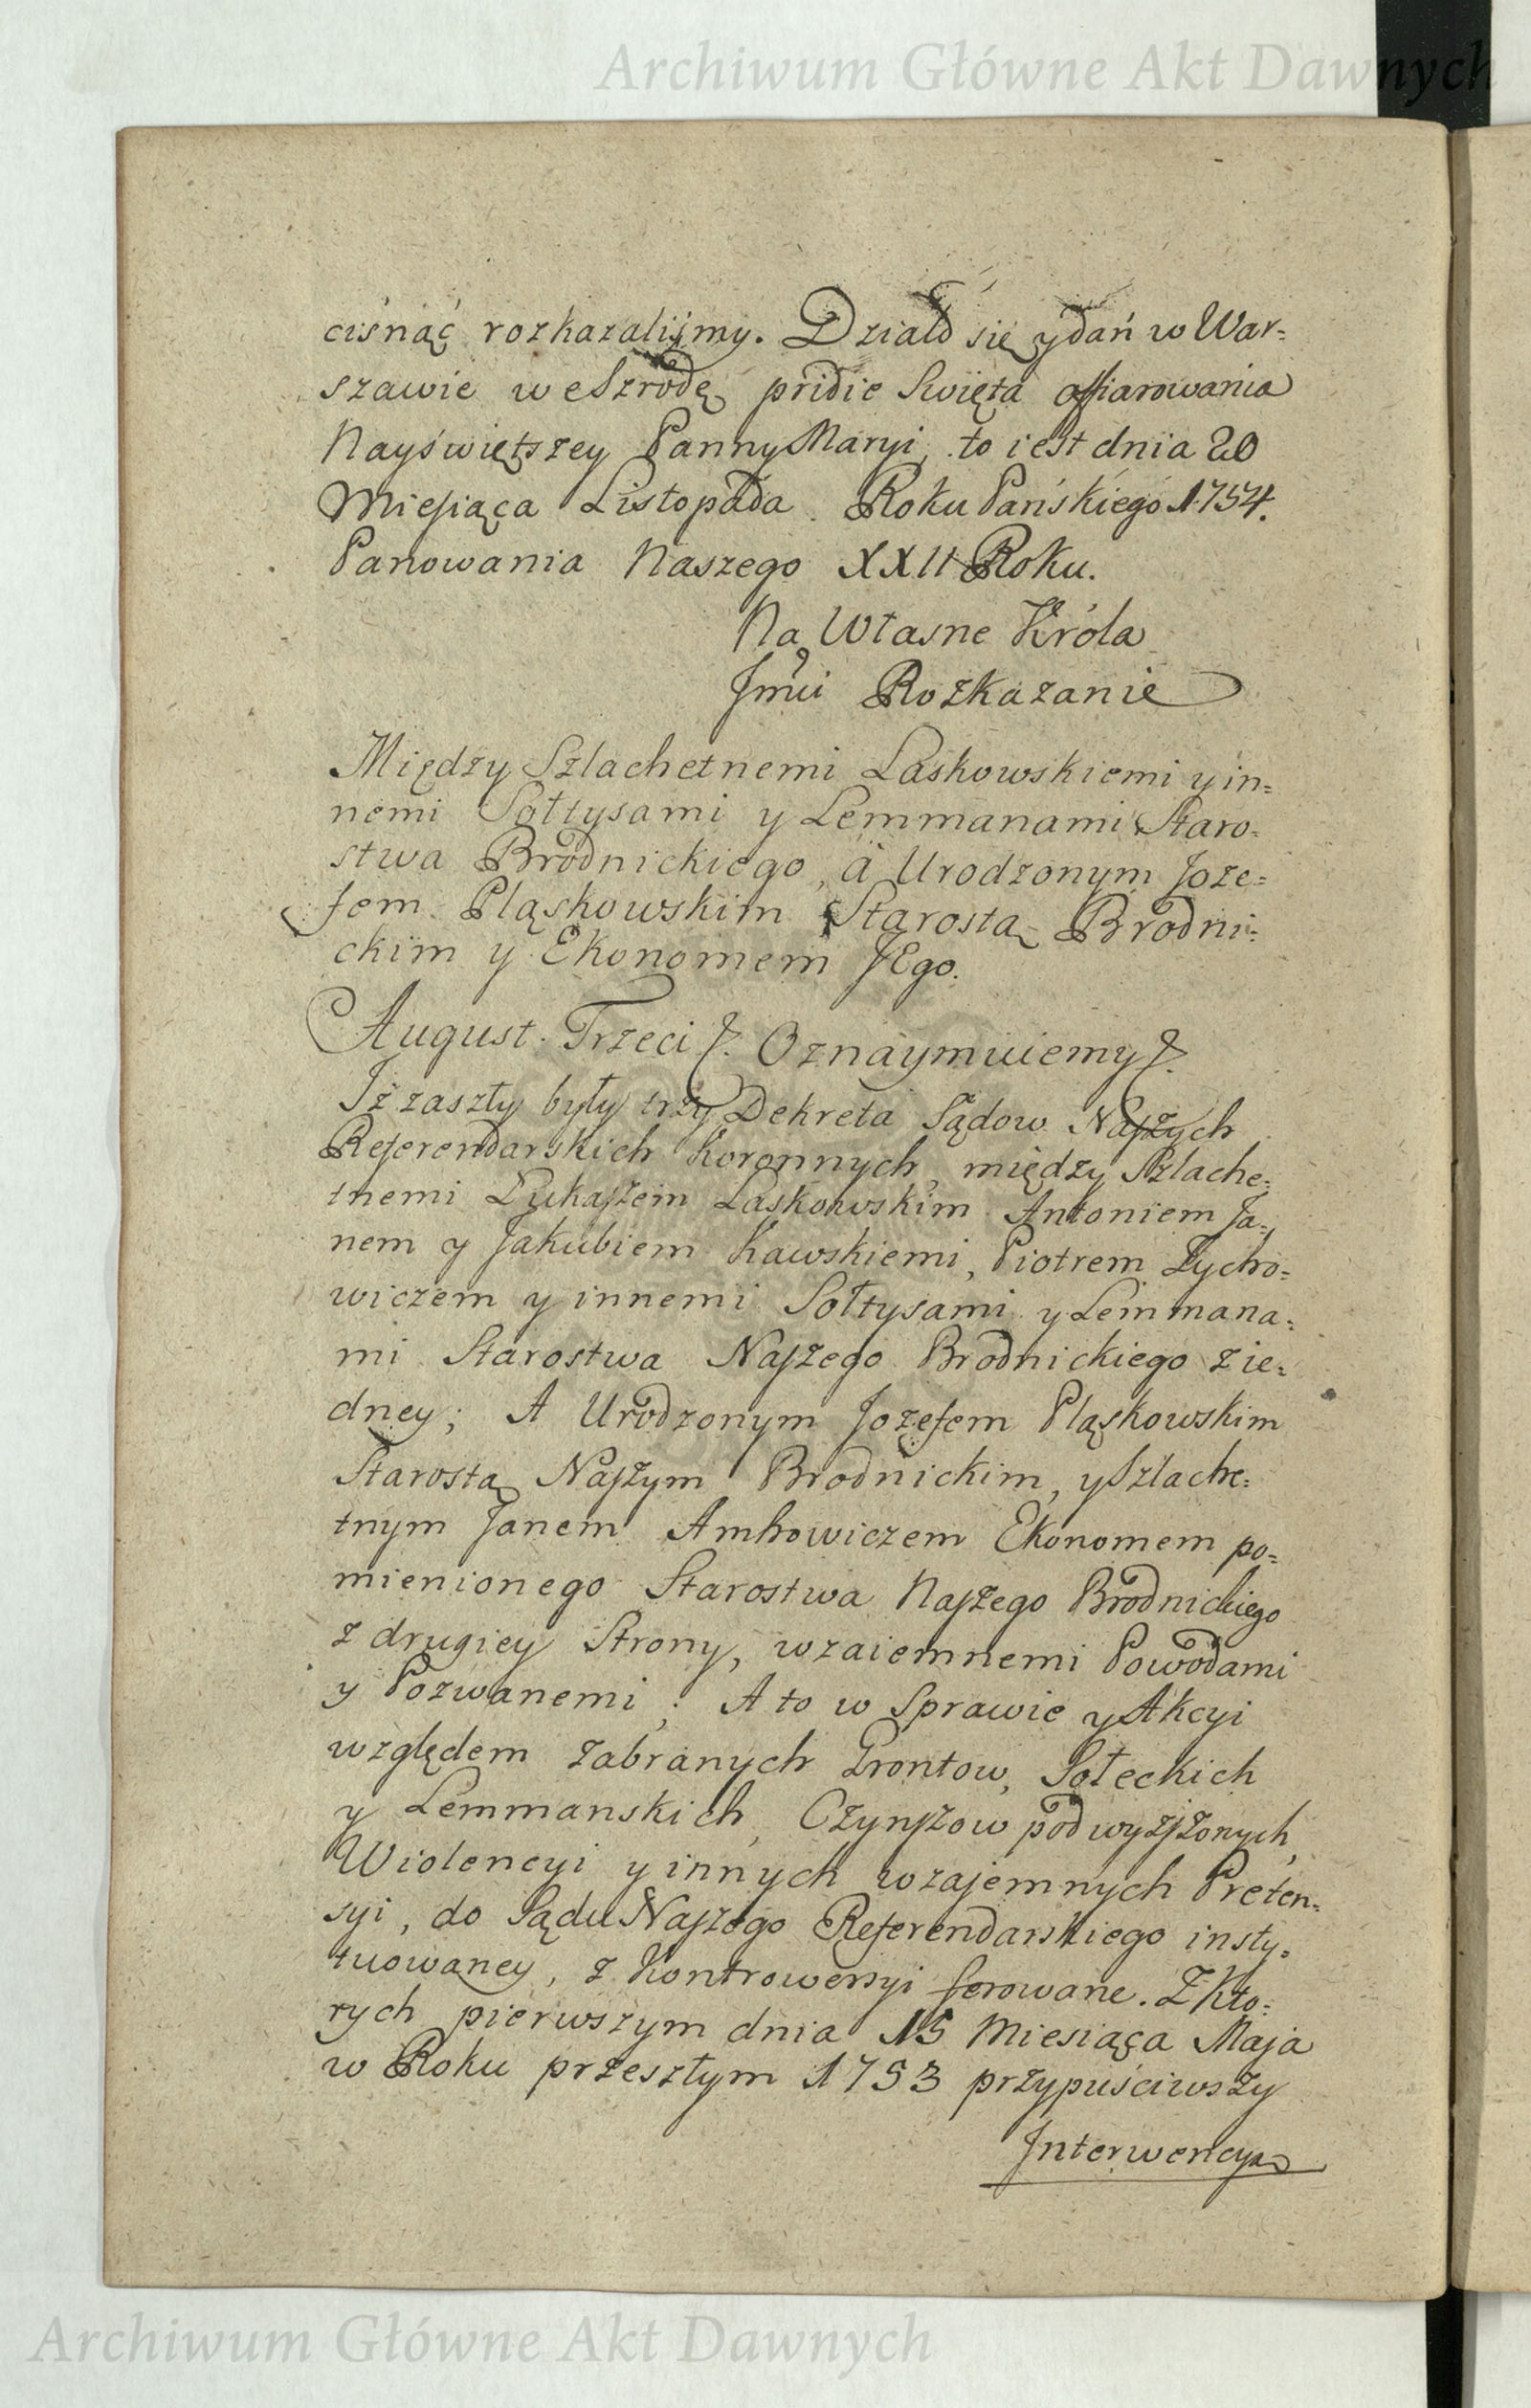 Archiwum Główne Akt Dawnych
cisnąć rozkazaliśmy. Działo się y dań w War=
szawie we Szrodę pridie Swięta offiarowania
Nayświętszey Panny Maryi, to iest dnia 20
Miesiąca Listopada Roku Pańskiego 1754.
Panowania Naszego XXII Roku.
Na Własne Króla
Jmci Rozkazanie
Między Szlachetnemi Laskowskiemi y in=
nemi Sołtysami y Lemmanami Staro=
stwa Brodnickiego, á Urodzonym Joze=
fem Pląskowskim Starostą Brodni=
ckim y Ekonomem JEgo.
August Trzeci &. Oznaymuiemy &.
Jż zaszły były trzy Dekreta Sądow Naszych
Referendarskich Koronnych, między Szlache=
tnemi Łukaszem Laskowskim Antoniem Ja=
nem y Jakubiem Kawskiemi, Piotrem Zycho=
wiczem y innemi Sołtysami y Lemmana=
mi Starostwa Naszego Brodnickiego z ie=
dney; A Urodzonym Jozefem Pląskowskim
Starostą Naszym Brodnickim, y Szlache=
tnym Janem Amhowiczem Ekonomem po=
mienionego Starostwa Naszego Brodnickiego
z drugiey Strony, wzaiemnemi Powodami
y Pozwanemi; A to w Sprawie y Akcyi
względem zabranych Grontow, Sołeckich
y Lemmanskich, Czynszow podwyższonych,
Wiolencyi y innych wzajemnych Preten=
syi, do Sądu Naszego Referendarskiego insty=
tuowaney, z Kontrowersyi ferowane. Z Kto=
rych pierwszym dnia 15 Miesiąca Maja
w Roku przeszłym 1753 przypuściwszy
Interwencyą
Archiwum Główne Akt Dawnych